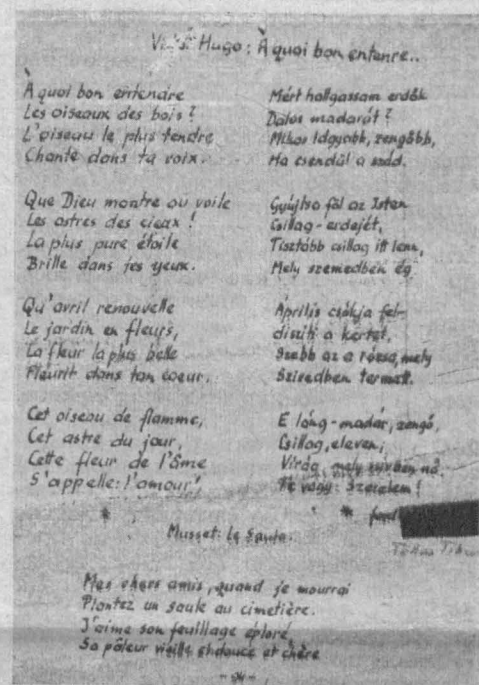 Hugo: À quoi bon entenre..
À quoi bon entendre
Les oiseaux des bois?
L'oiseau le plus tendre
Chante dans ta voix.
Que Dieu montre ou voile
Les astres des cieux!
La plus pure étoile
Brille dans tes yeux.
Qu'avril renouvelle
Le jardin en fleurs,
La fleur la plus belle
Fleurit dans ton coeur.
Cet oiseau de flamme,
Cet astre du jour,
Cette fleur de l'âme
S'appelle: l'amour!
Mért hallgassam erdők
Dalos madarát?
Mikor lágyabb, zengőbb,
Ha csendül a szád.
Gyújtsa föl az Isten
Csillag-erdejét,
Tisztább csillag itt lenn,
Mely szemedben ég
Április csókja fel-
disziti a kertet,
Szebb az a rózsa, mely
Szivedben termett.
E láng-madár, zengő,
Csillag, eleven;
Virág, mely szivben nő.
Te vagy: Szerelem!
*
*
Musset: Le Saule.
Mes chers amis, quand je mourrai
Plantez un saule au cimetière.
J'aime son feuillage éploré,
Sa pâleur et chère
-94-